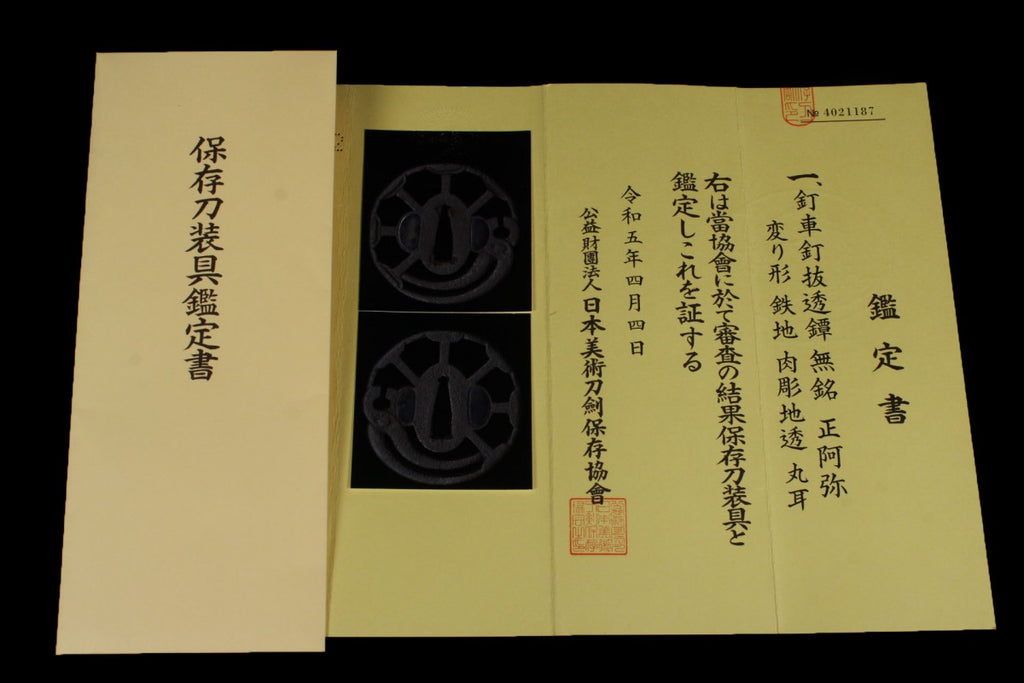 保存刀装具鑑定書
№ 4021187
鑑定書
一、釘車釘抜透鐔 無銘 正阿弥
変り形 鉄地 肉彫地透 丸耳
右は當協會に於て審査の結果保存刀装具と
鑑定しこれを証する
令和五年四月四日
公益財團法人日本美術刀劍保存協會